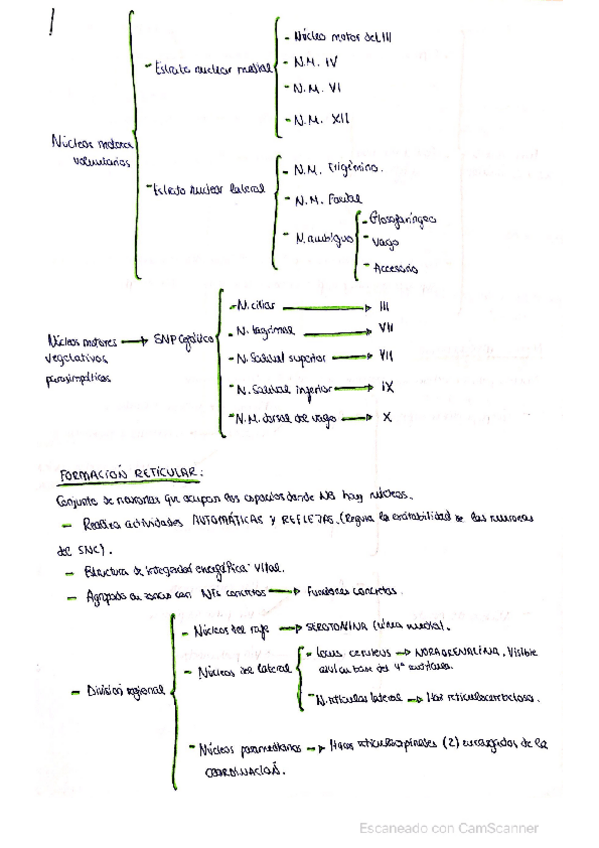 - Núcleo motor del III
- Estrato nuclear medial
- N.M. IV
- N.M. VI
- N.M. XII
Núcleos motores
voluntarios
- Estrato nuclear lateral
- N.M. Trigémino.
- N.M. Facial
- N. ambiguo
- Glosofaríngeo
- Vago
- Accesorio
Núcleos motores → SNP cefálico
vegetativos
parasimpáticos
- N. ciliar → III
- N. lagrimal → VII
- N. Salival superior → VII
- N. Salival inferior → IX
- N.M. dorsal del vago → X
FORMACIÓN RETICULAR:
Conjunto de neuronas que ocupan los espacios donde NO hay núcleos.
- Realiza actividades AUTOMÁTICAS Y REFLEJAS. (Regula la excitabilidad de las neuronas
del SNC).
- Estructura de integridad energética vital.
- Agrupado en zonas con NTs concretos → Funciones concretas.
- División regional
- Núcleos del rafe → SEROTONINA (línea medial).
- Núcleos del lateral
- locus ceruleus → NORADRENALINA. Visible
azul en base del 4º ventrículo.
- N. reticular lateral → Haz reticulocerebeloso.
- Núcleos paramedianos → Haces reticuloespinales (2) encargados de la
COORDINACIÓN.
Escaneado con CamScanner